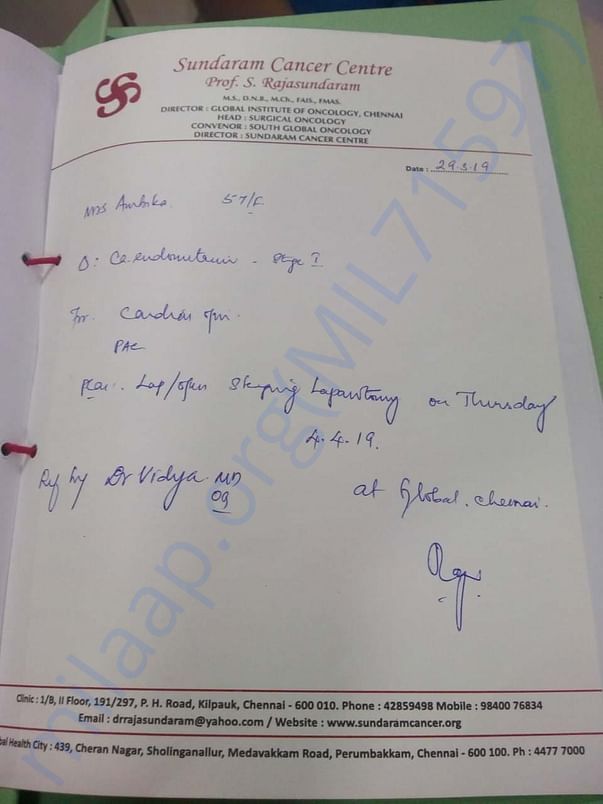 Sundaram Cancer Centre
Prof. S. Rajasundaram
M.S., D.N.B., M.Ch., FAIS., FMAS.
DIRECTOR : GLOBAL INSTITUTE OF ONCOLOGY, CHENNAI
HEAD : SURGICAL ONCOLOGY
CONVENOR : SOUTH GLOBAL ONCOLOGY
DIRECTOR : SUNDARAM CANCER CENTRE
Date : 29.3.19
Mrs Ambika 57/F
Ca. endometrium - Stage I
PAC
Plan: Lap/open Staging Laparotomy on Thursday
4.4.19.
Ref by Dr Vidya. MD
OG
at Global. Chennai.
Clinic : 1/B, II Floor, 191/297, P. H. Road, Kilpauk, Chennai - 600 010. Phone : 42859498 Mobile : 98400 76834
Email : drrajasundaram@yahoo.com / Website : www.sundaramcancer.org
bal Health City : 439, Cheran Nagar, Sholinganallur, Medavakkam Road, Perumbakkam, Chennai - 600 100. Ph : 4477 7000
milaap.org(MIL71597)